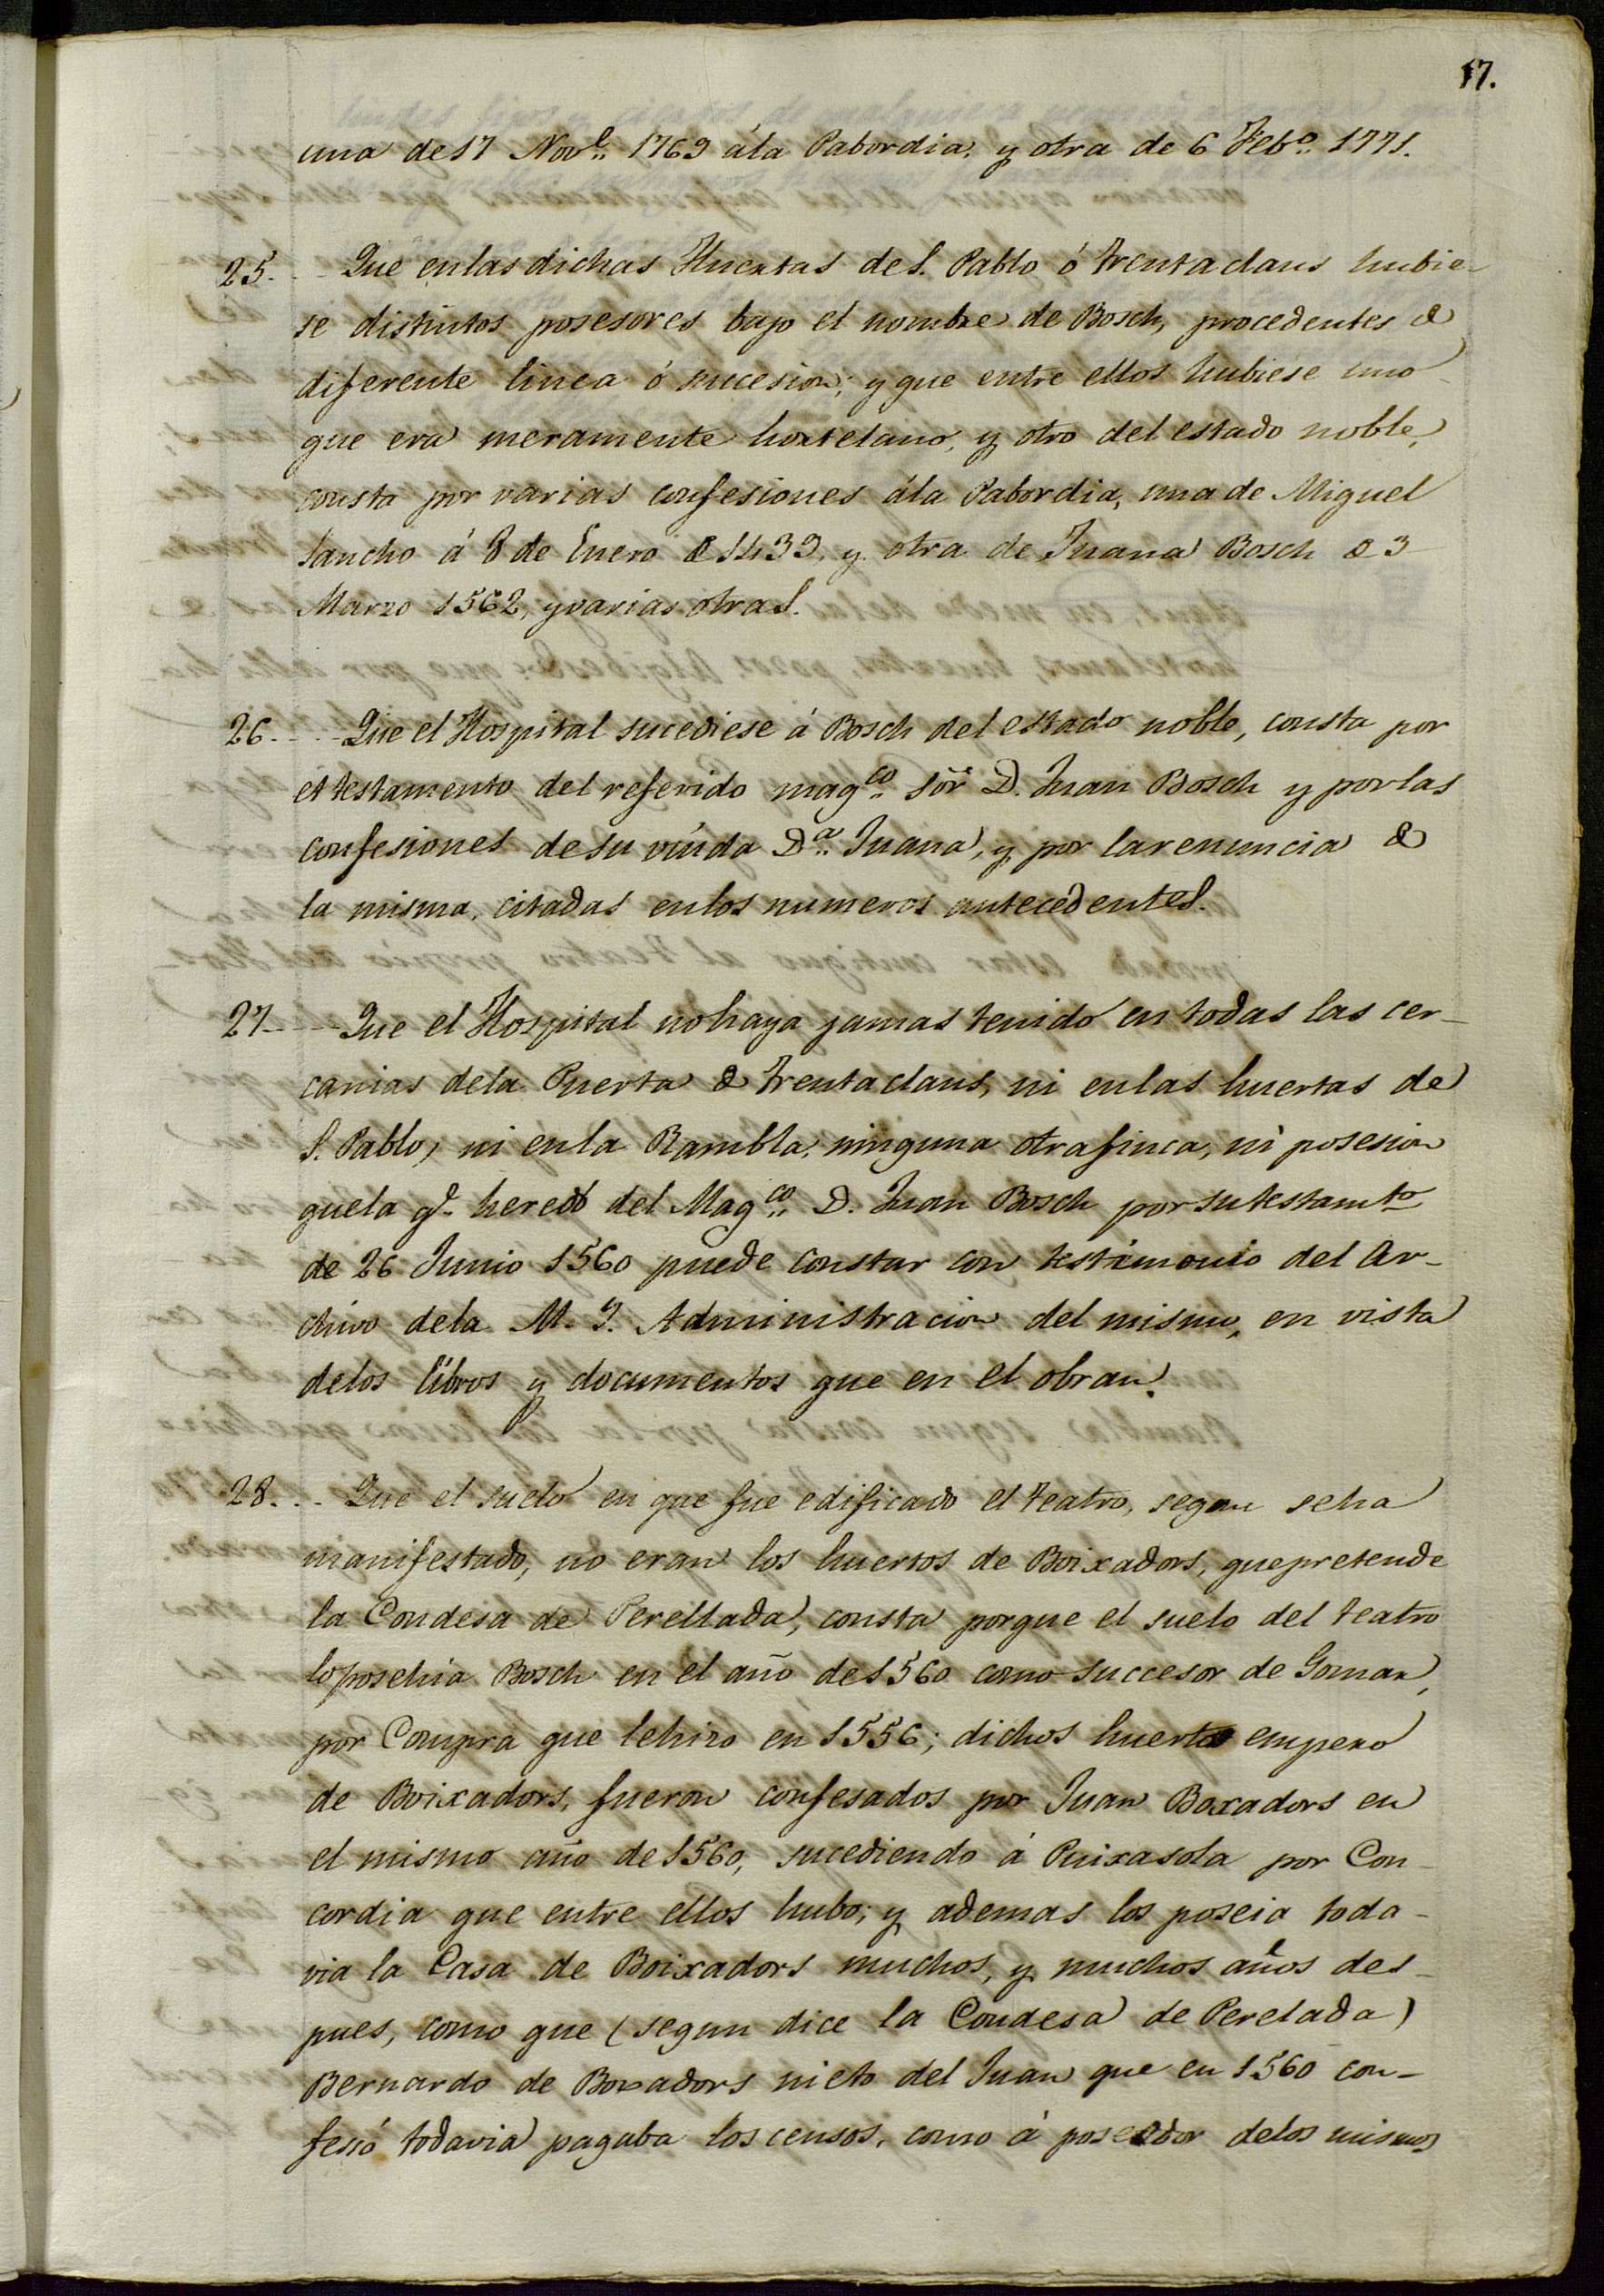 17.
una de 17 Nov.e 1769 ála Pabordia, y otra de 6 Feb.o 1771.
25. Que enlas dichas Huertas de S. Pablo ó trentaclaus hubie-
se distintos posesores bajo el nombre de Bosch, procedentes de
diferente linea ó sucesion; y que entre ellos hubiese uno
que era meramente hortelano, y otro del estado noble,
consta por varias confesiones ála Pabordia, una de Miguel
Sancho á 8 de Enero de 1439, y otra de Juana Bosch de 3
Marzo 1562, y varias otras.
26. Que el Hospital sucediese á Bosch del estado noble, consta por
el testamento del referido mag.co Sor. D. Juan Bosch y por las
confesiones de su viuda D.a Juana, y por la renuncia de
la misma, citadas enlos numeros antecedentes.
27. Que el Hospital no haya jamas tenido en todas las cer-
canias dela Puerta de trentaclaus, ni enlas huertas de
S. Pablo, ni enla Rambla, ninguna otra finca, ni posesion
quela q.e heredó del Mag.co D. Juan Bosch por su testam.to
de 26 Junio 1560 puede constar con testimonio del Ar-
chivo dela M. I. Administracion del mismo, en vista
delos libros y documentos que en el obran.
28. Que el suelo en que fue edificado el teatro, segun se ha
manifestado, no eran los huertos de Boixadors, que pretende
la Condesa de Perellada, consta porque el suelo del teatro
lo posehia Bosch en el año de 1560 como successor de Gomar,
por Compra que le hizo en 1556; dichos huertos empero
de Boixadors, fueron confesados por Juan Boxadors en
el mismo año de 1560, sucediendo á Puixasola por Con-
cordia que entre ellos hubo; y ademas los poseia toda-
via la Casa de Boixadors muchos, y muchos años des-
pues, como que (segun dice la Condesa de Perelada)
Bernardo de Boxadors nieto del Juan que en 1560 con-
fesó todavia pagaba los censos, como á poseedor delos mismos